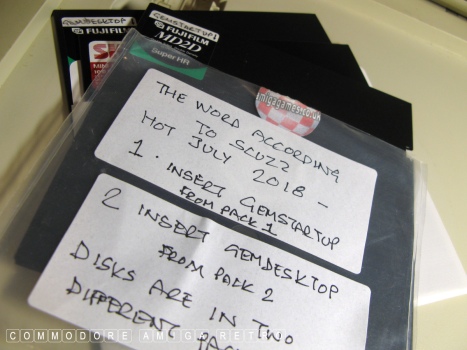 GEMDESKTOP 1
FUJI FILM
GEMSTARTUP 1
FUJI FILM
MD2D
Super HR
amigagames.co.uk
THE WORD ACCORDING
TO SCUZZ
HOT JULY 2018 -
1. INSERT GEMSTARTUP
FROM PACK 1
2 INSERT GEMDESKTOP
FROM PACK 2
DISKS ARE IN TWO
DIFFERENT
COMMODORE AMIGA RETRO